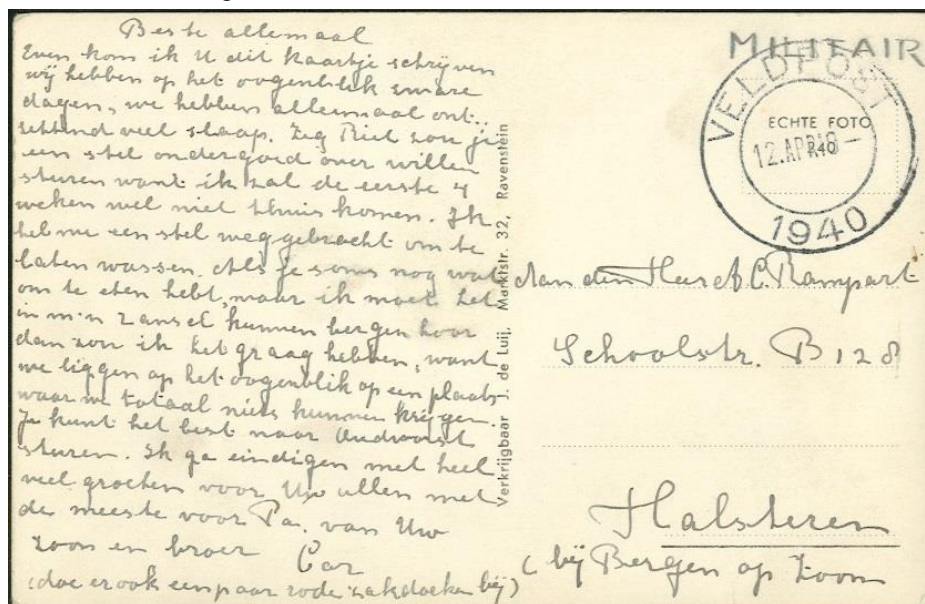 Beste allemaal
Even kom ik U dit kaartje schrijven
wij hebben op het oogenblik sware
dagen, we hebben allemaal ont-
settend veel slaap. Zeg Riet zou je
een stel ondergoed over willen
sturen want ik zal de eerste 4
weken wel niet thuis komen. Ik
heb me een stel weggebracht om te
laten wassen. Als je soms nog wat
om te eten hebt, maar ik moet het
in m'n ransel kunnen bergen hoor
dan zou ik het graag hebben, want
we liggen op het oogenblik op een plaats
waar we totaal niets kunnen krijgen.
Je kunt het best naar
sturen. Ik ga eindigen met heel
veel groeten voor Uw allen met
de meeste voor Pa. van Uw
zoon en broer Cor
(doe er ook een paar rode zakdoeken bij)
Verkrijgbaar J. de Luij, Marktstr. 32, Ravenstein
MILITAIR
VELDPOST
ECHTE FOTO
12.APR
1940
Aan den Heer A.C. Rampart
Schoolstr. B 128
Halsteren
(bij Bergen op Zoom